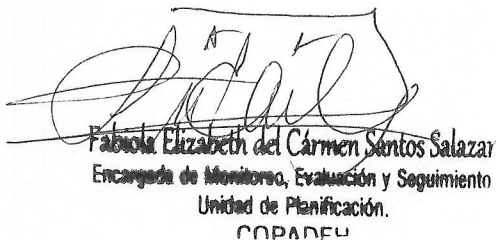 Fabiola Elizabeth del Cármen Santos Salazar
Encargada de Monitoreo, Evaluación y Seguimiento
Unidad de Planificación.
COPADEH